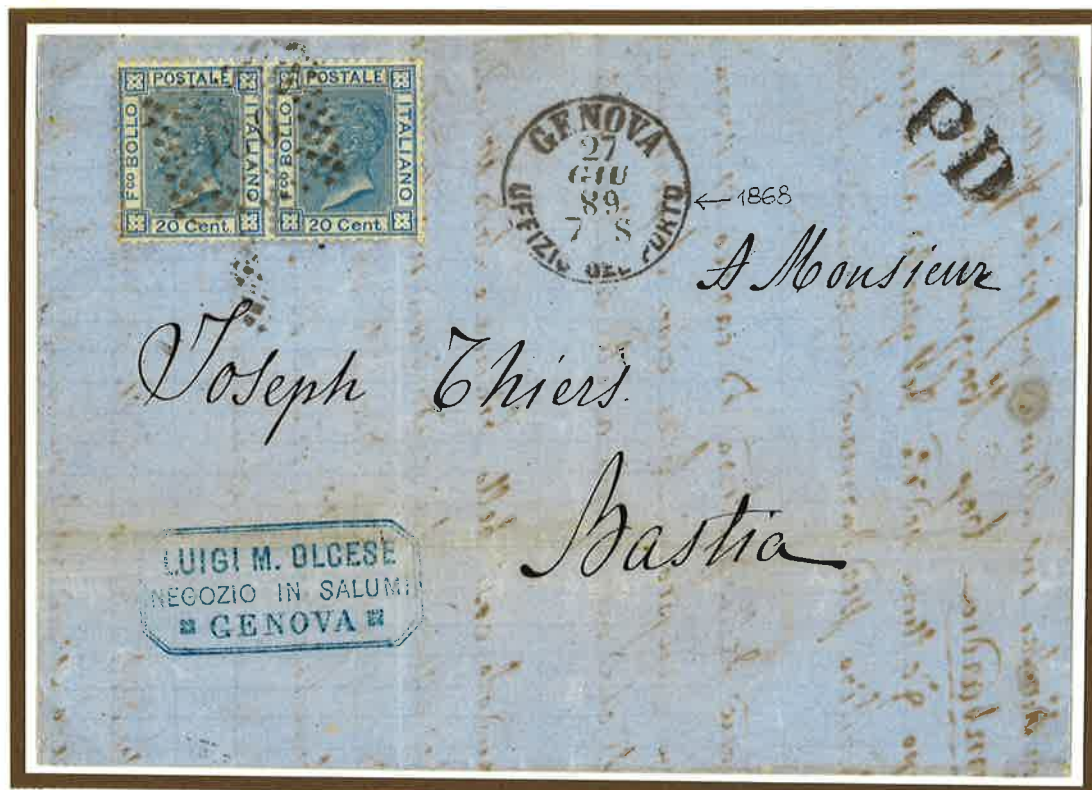 POSTALE POSTALE
Fco BOLLO ITALIANO Fco BOLLO ITALIANO
20 Cent. 20 Cent.
GENOVA
27
GIU
89
7 S
UFFIZIO DEL PORTO
← 1868
PD
A Monsieur
Joseph Thiers.
Bastia
LUIGI M. OLCESE
NEGOZIO IN SALUMI
GENOVA